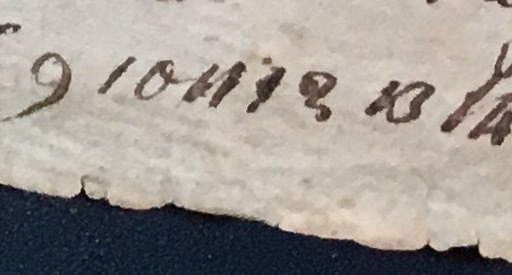 9 10 11 12 13 14